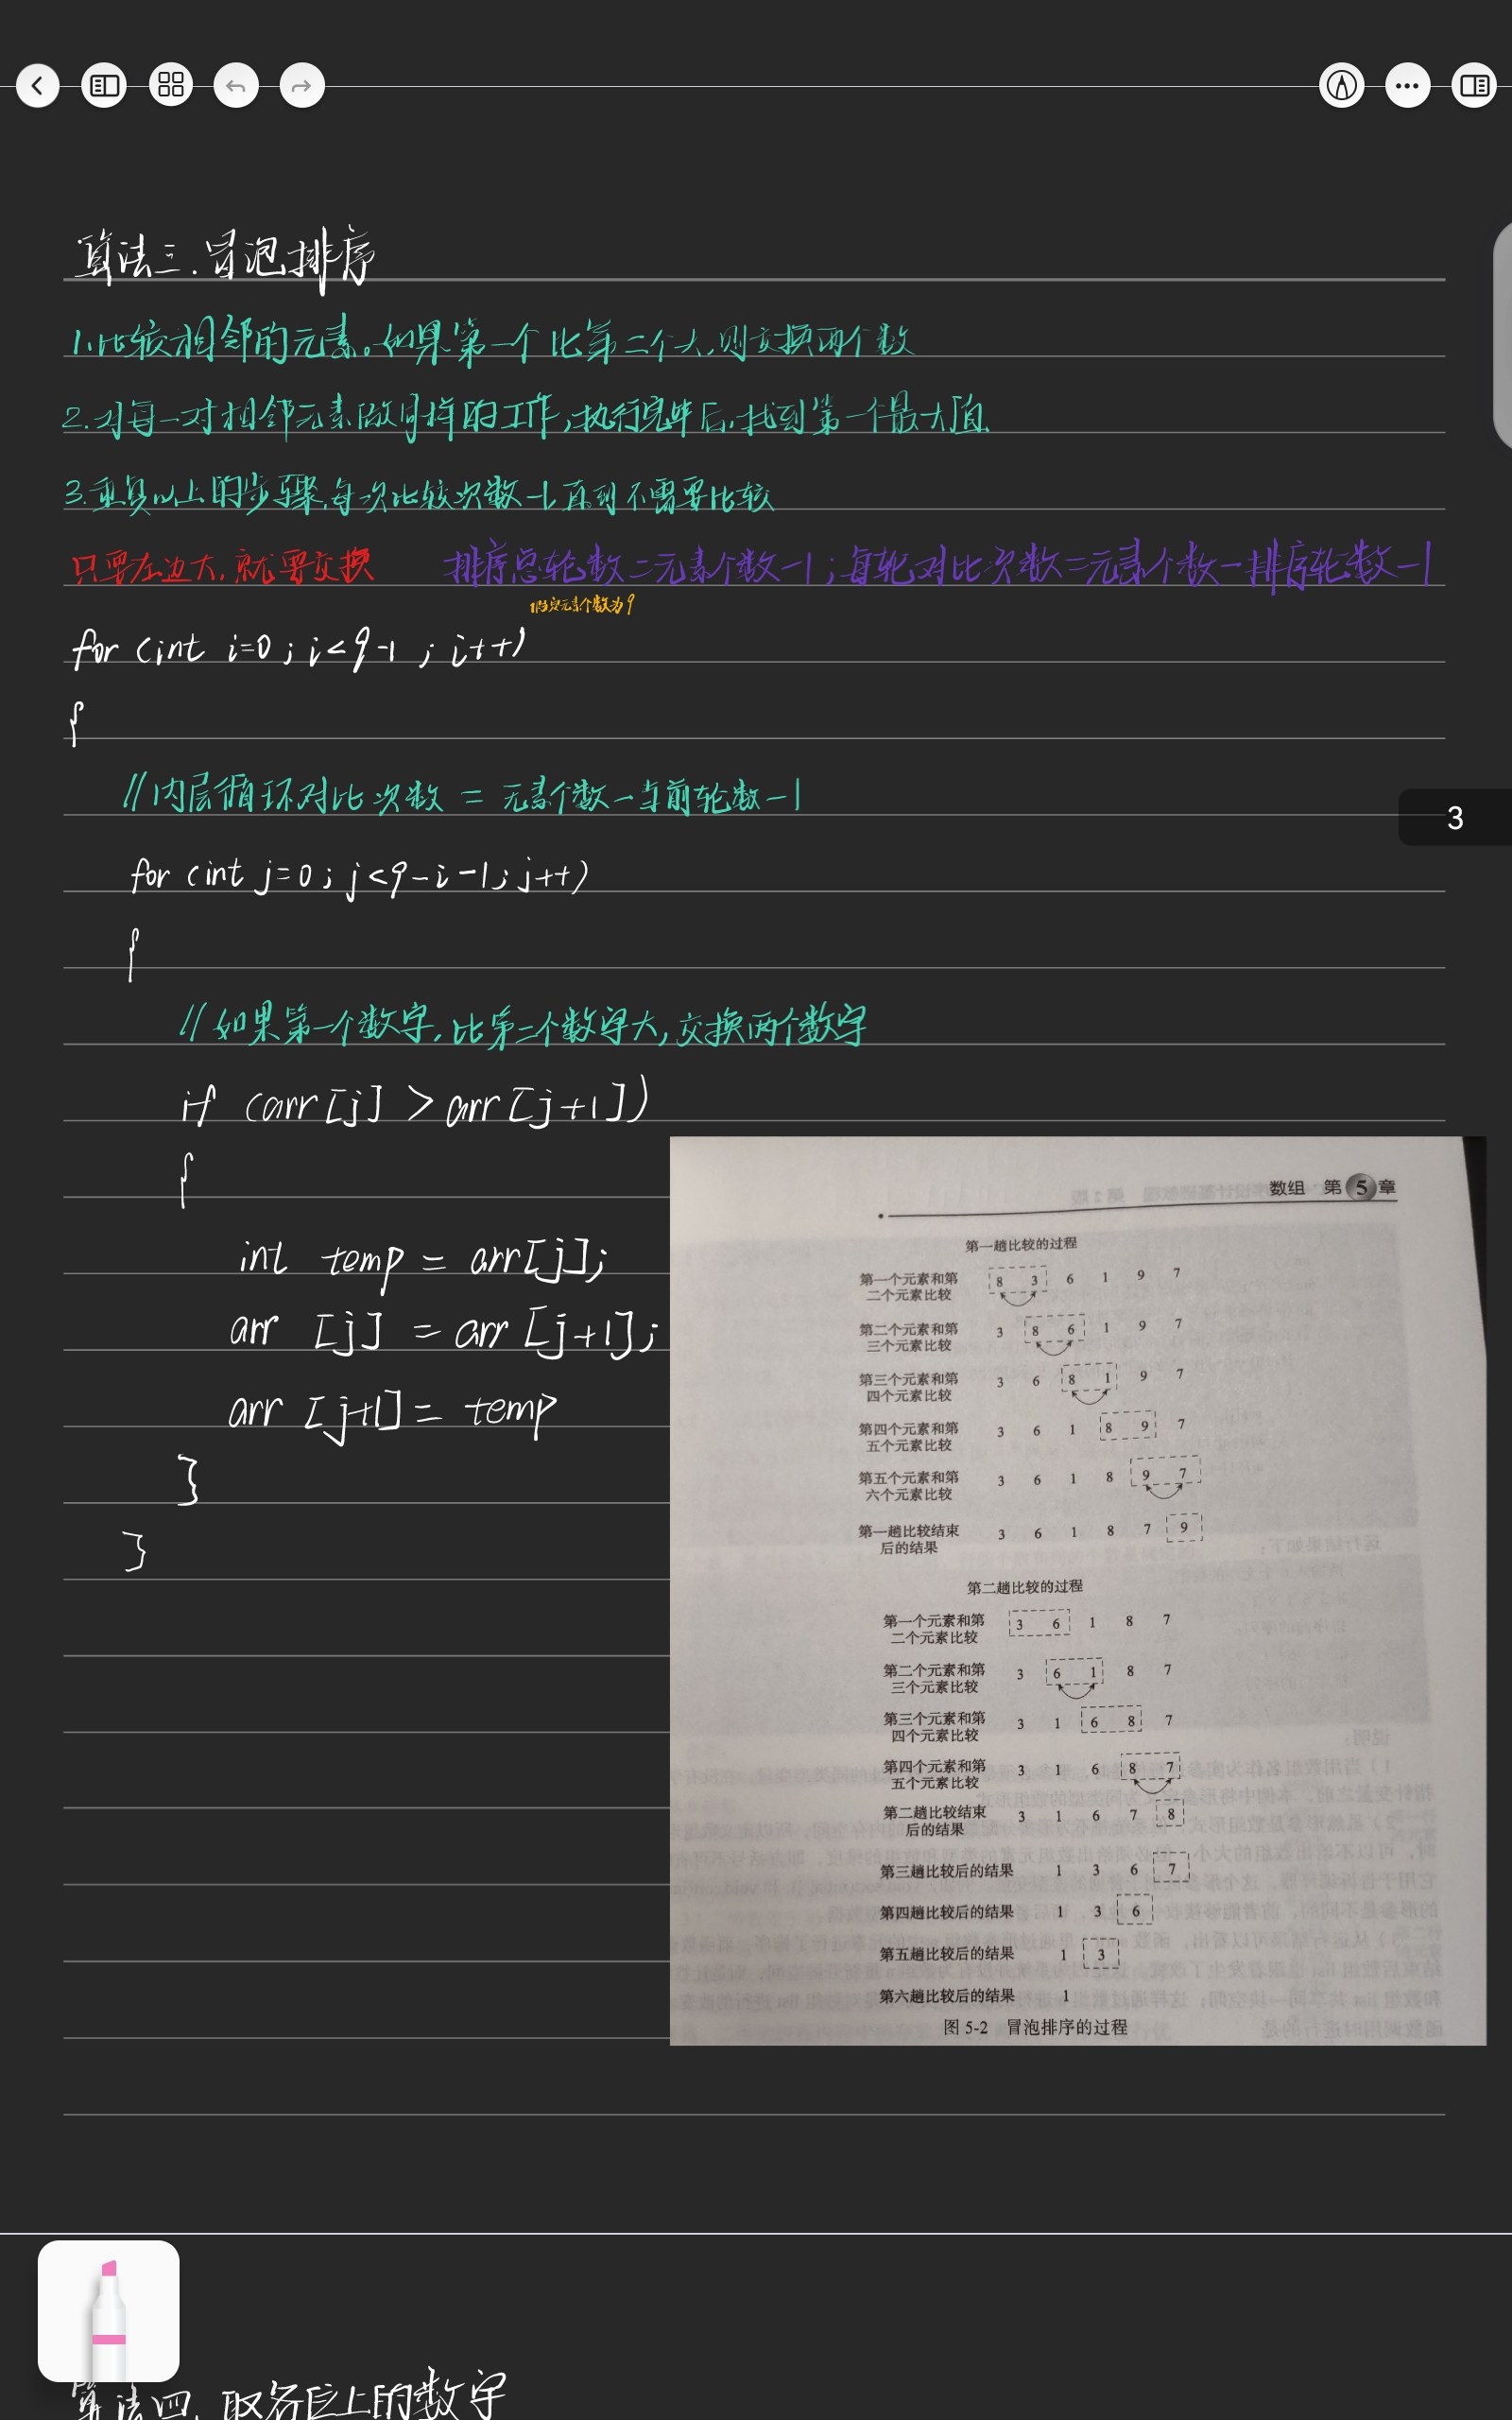 算法三.冒泡排序
1.比较相邻的元素。如果第一个比第二个大,则交换两个数
2.对每一对相邻元素做同样的工作,执行完毕后,找到第一个最大值
3.重复以上的步骤,每次比较次数-1,直到不需要比较
只要左边大,就要交换 排序总轮数=元素个数-1;每轮对比次数=元素个数-排序轮数-1
假定元素个数为9
for (int i=0; i<9-1; i++)
{
//内层循环对比次数 = 元素个数-当前轮数-1
3
for (int j=0; j<9-i-1; j++)
{
//如果第一个数字,比第二个数字大,交换两个数字
if (arr[j] > arr[j+1])
{
int temp = arr[j];
arr [j] = arr [j+1];
arr [j+1] = temp
}
}
数组 第5章
第一趟比较的过程
第一个元素和第 8 3 6 1 9 7
二个元素比较
第二个元素和第 3 8 6 1 9 7
三个元素比较
第三个元素和第 3 6 8 1 9 7
四个元素比较
第四个元素和第 3 6 1 8 9 7
五个元素比较
第五个元素和第 3 6 1 8 9 7
六个元素比较
第一趟比较结束 3 6 1 8 7 9
后的结果
第二趟比较的过程
第一个元素和第 3 6 1 8 7
二个元素比较
第二个元素和第 3 6 1 8 7
三个元素比较
第三个元素和第 3 1 6 8 7
四个元素比较
第四个元素和第 3 1 6 8 7
五个元素比较
第二趟比较结束 3 1 6 7 8
后的结果
第三趟比较后的结果 1 3 6 7
第四趟比较后的结果 1 3 6
第五趟比较后的结果 1 3
第六趟比较后的结果 1
图 5-2 冒泡排序的过程
算法四.取各位上的数字